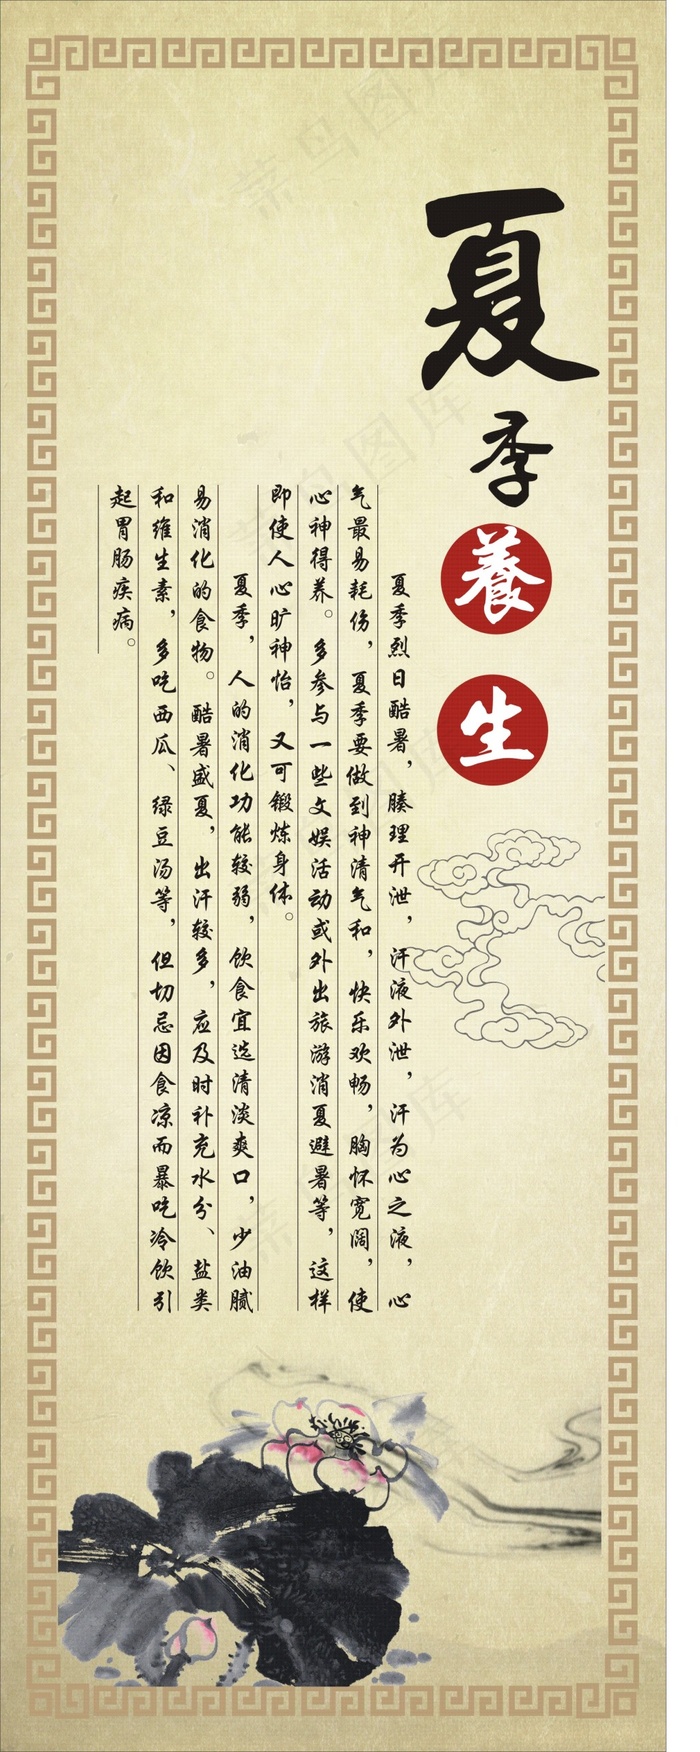 夏季養生
夏季烈日酷暑，腠理开泄，汗液外泄，汗为心之液，心
气最易耗伤，夏季要做到神清气和，快乐欢畅，胸怀宽阔，使
心神得养。多参与一些文娱活动或外出旅游消夏避暑等，这样
即使人心旷神怡，又可锻炼身体。
夏季，人的消化功能较弱，饮食宜选清淡爽口，少油腻
易消化的食物。酷暑盛夏，出汗较多，应及时补充水分、盐类
和维生素，多吃西瓜、绿豆汤等，但切忌因食凉而暴吃冷饮引
起胃肠疾病。
菜鸟图库
菜鸟图库
菜鸟图库
菜鸟图库